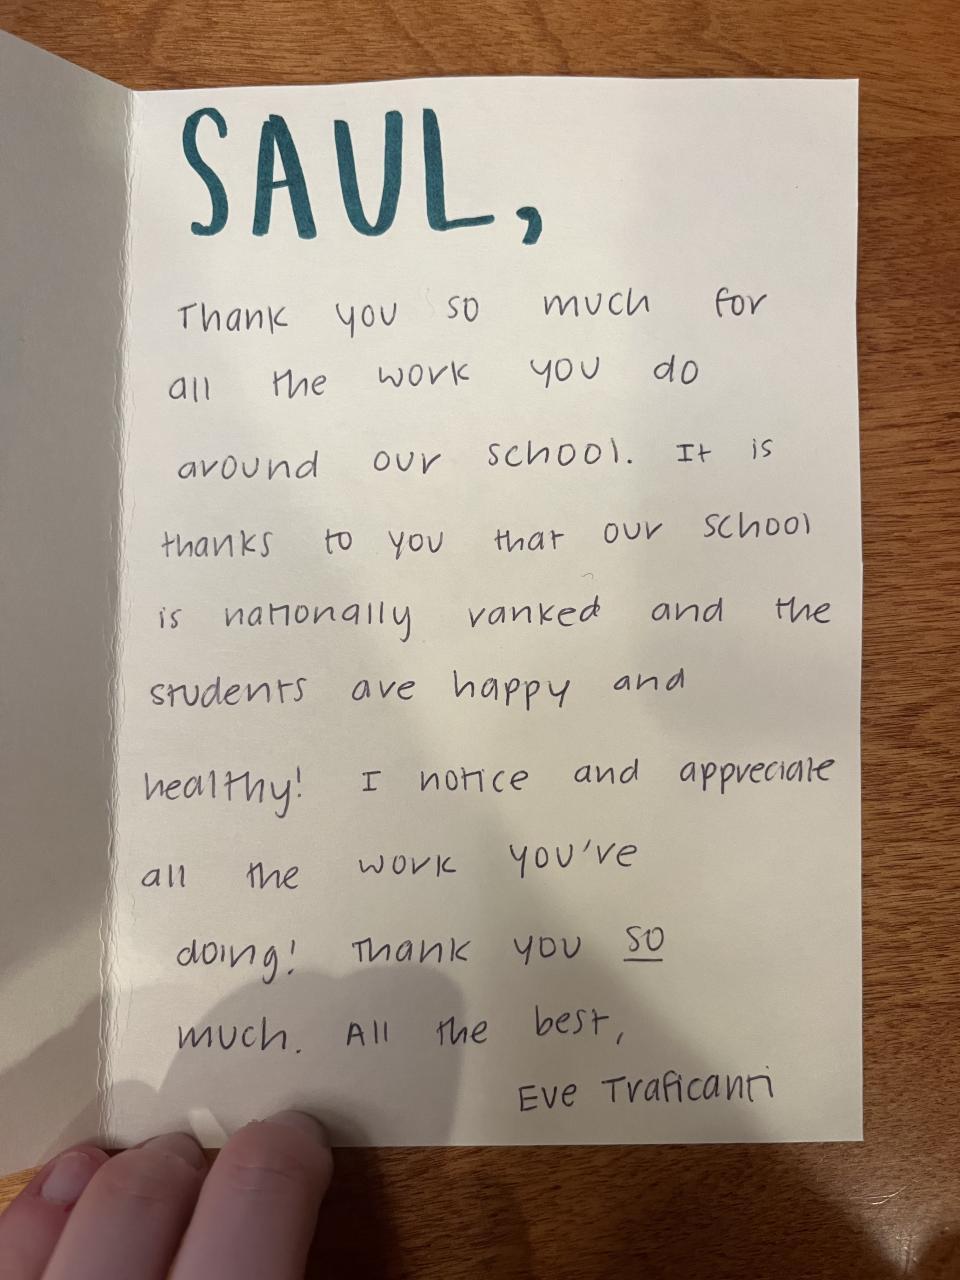 SAUL,
Thank you so much for
all the work you do
around our school. It is
thanks to you that our school
is nationally ranked and the
students are happy and
healthy! I notice and appreciate
all the work you've
doing! Thank you so
much. All the best,
Eve Traficanti